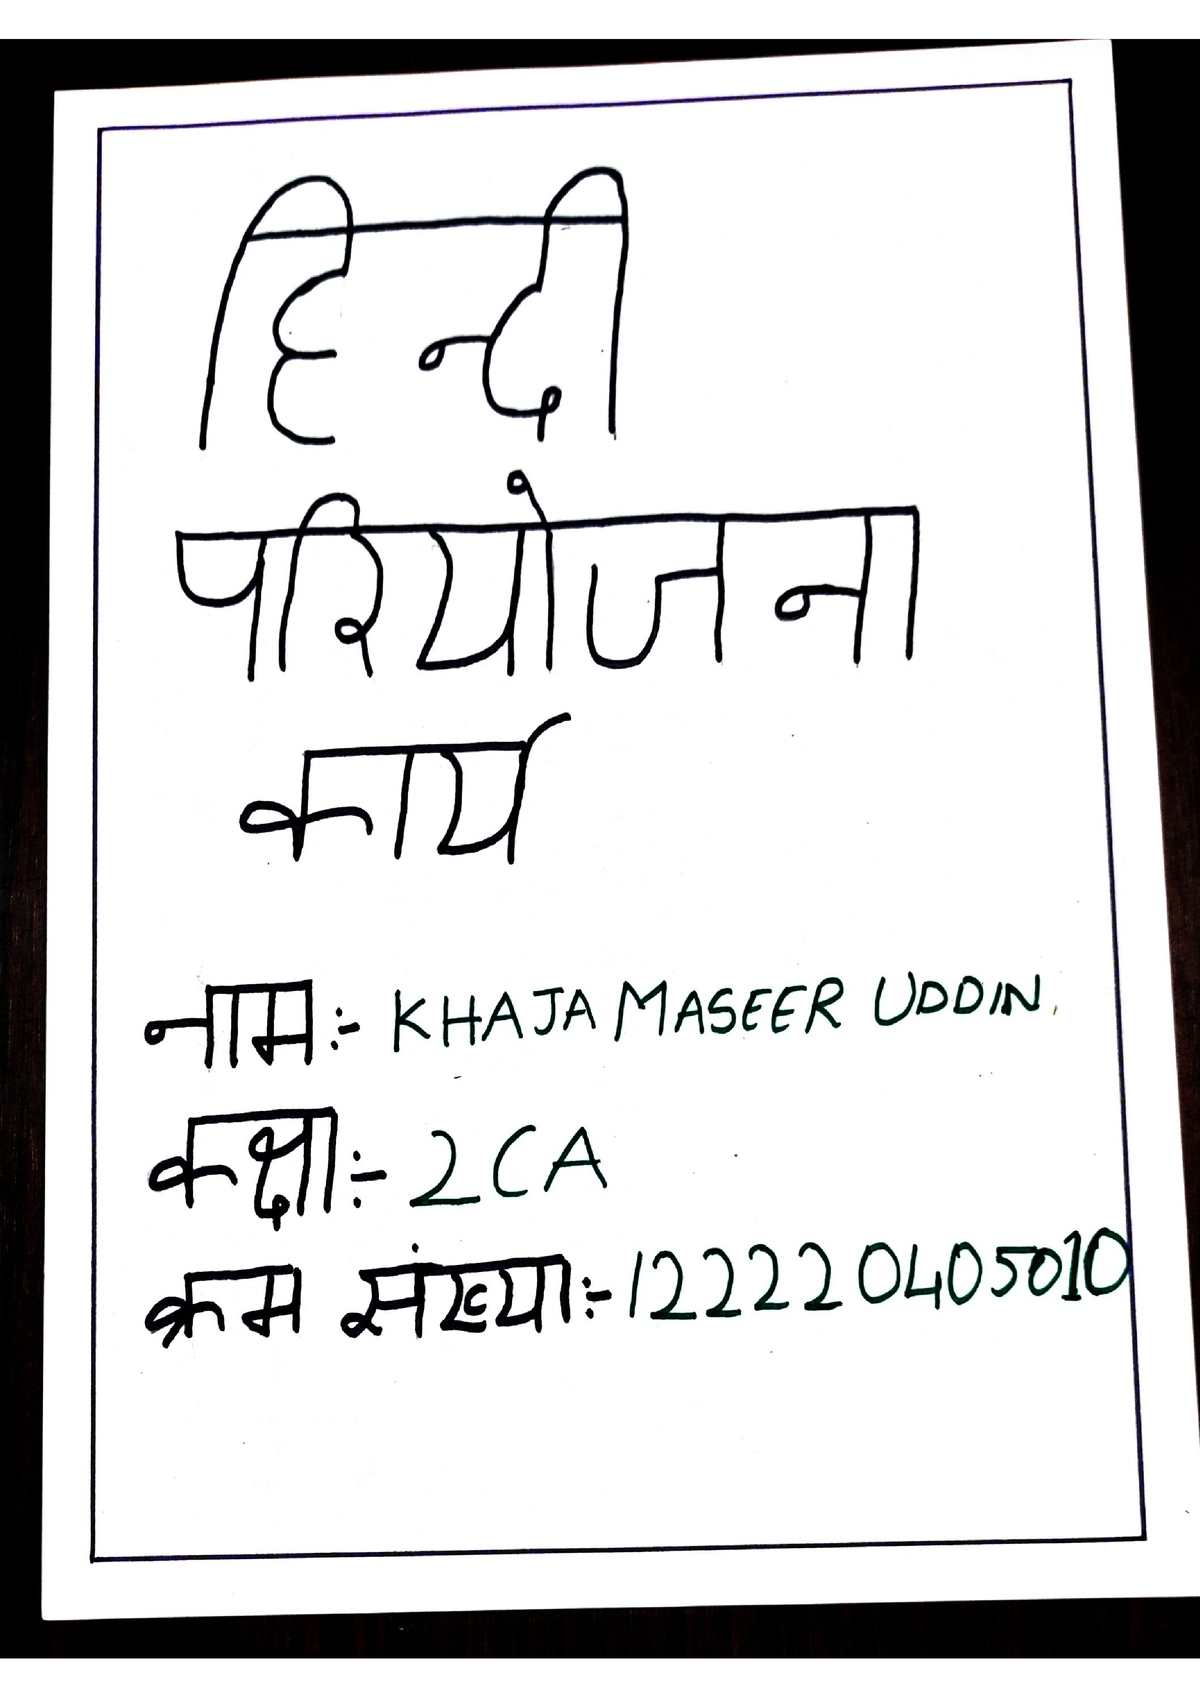 हिन्दी
परियोजना
कार्य
नाम:- KHAJA MASEER UDDIN.
कक्षा:- 2CA
क्रम संख्या:- 122220405010